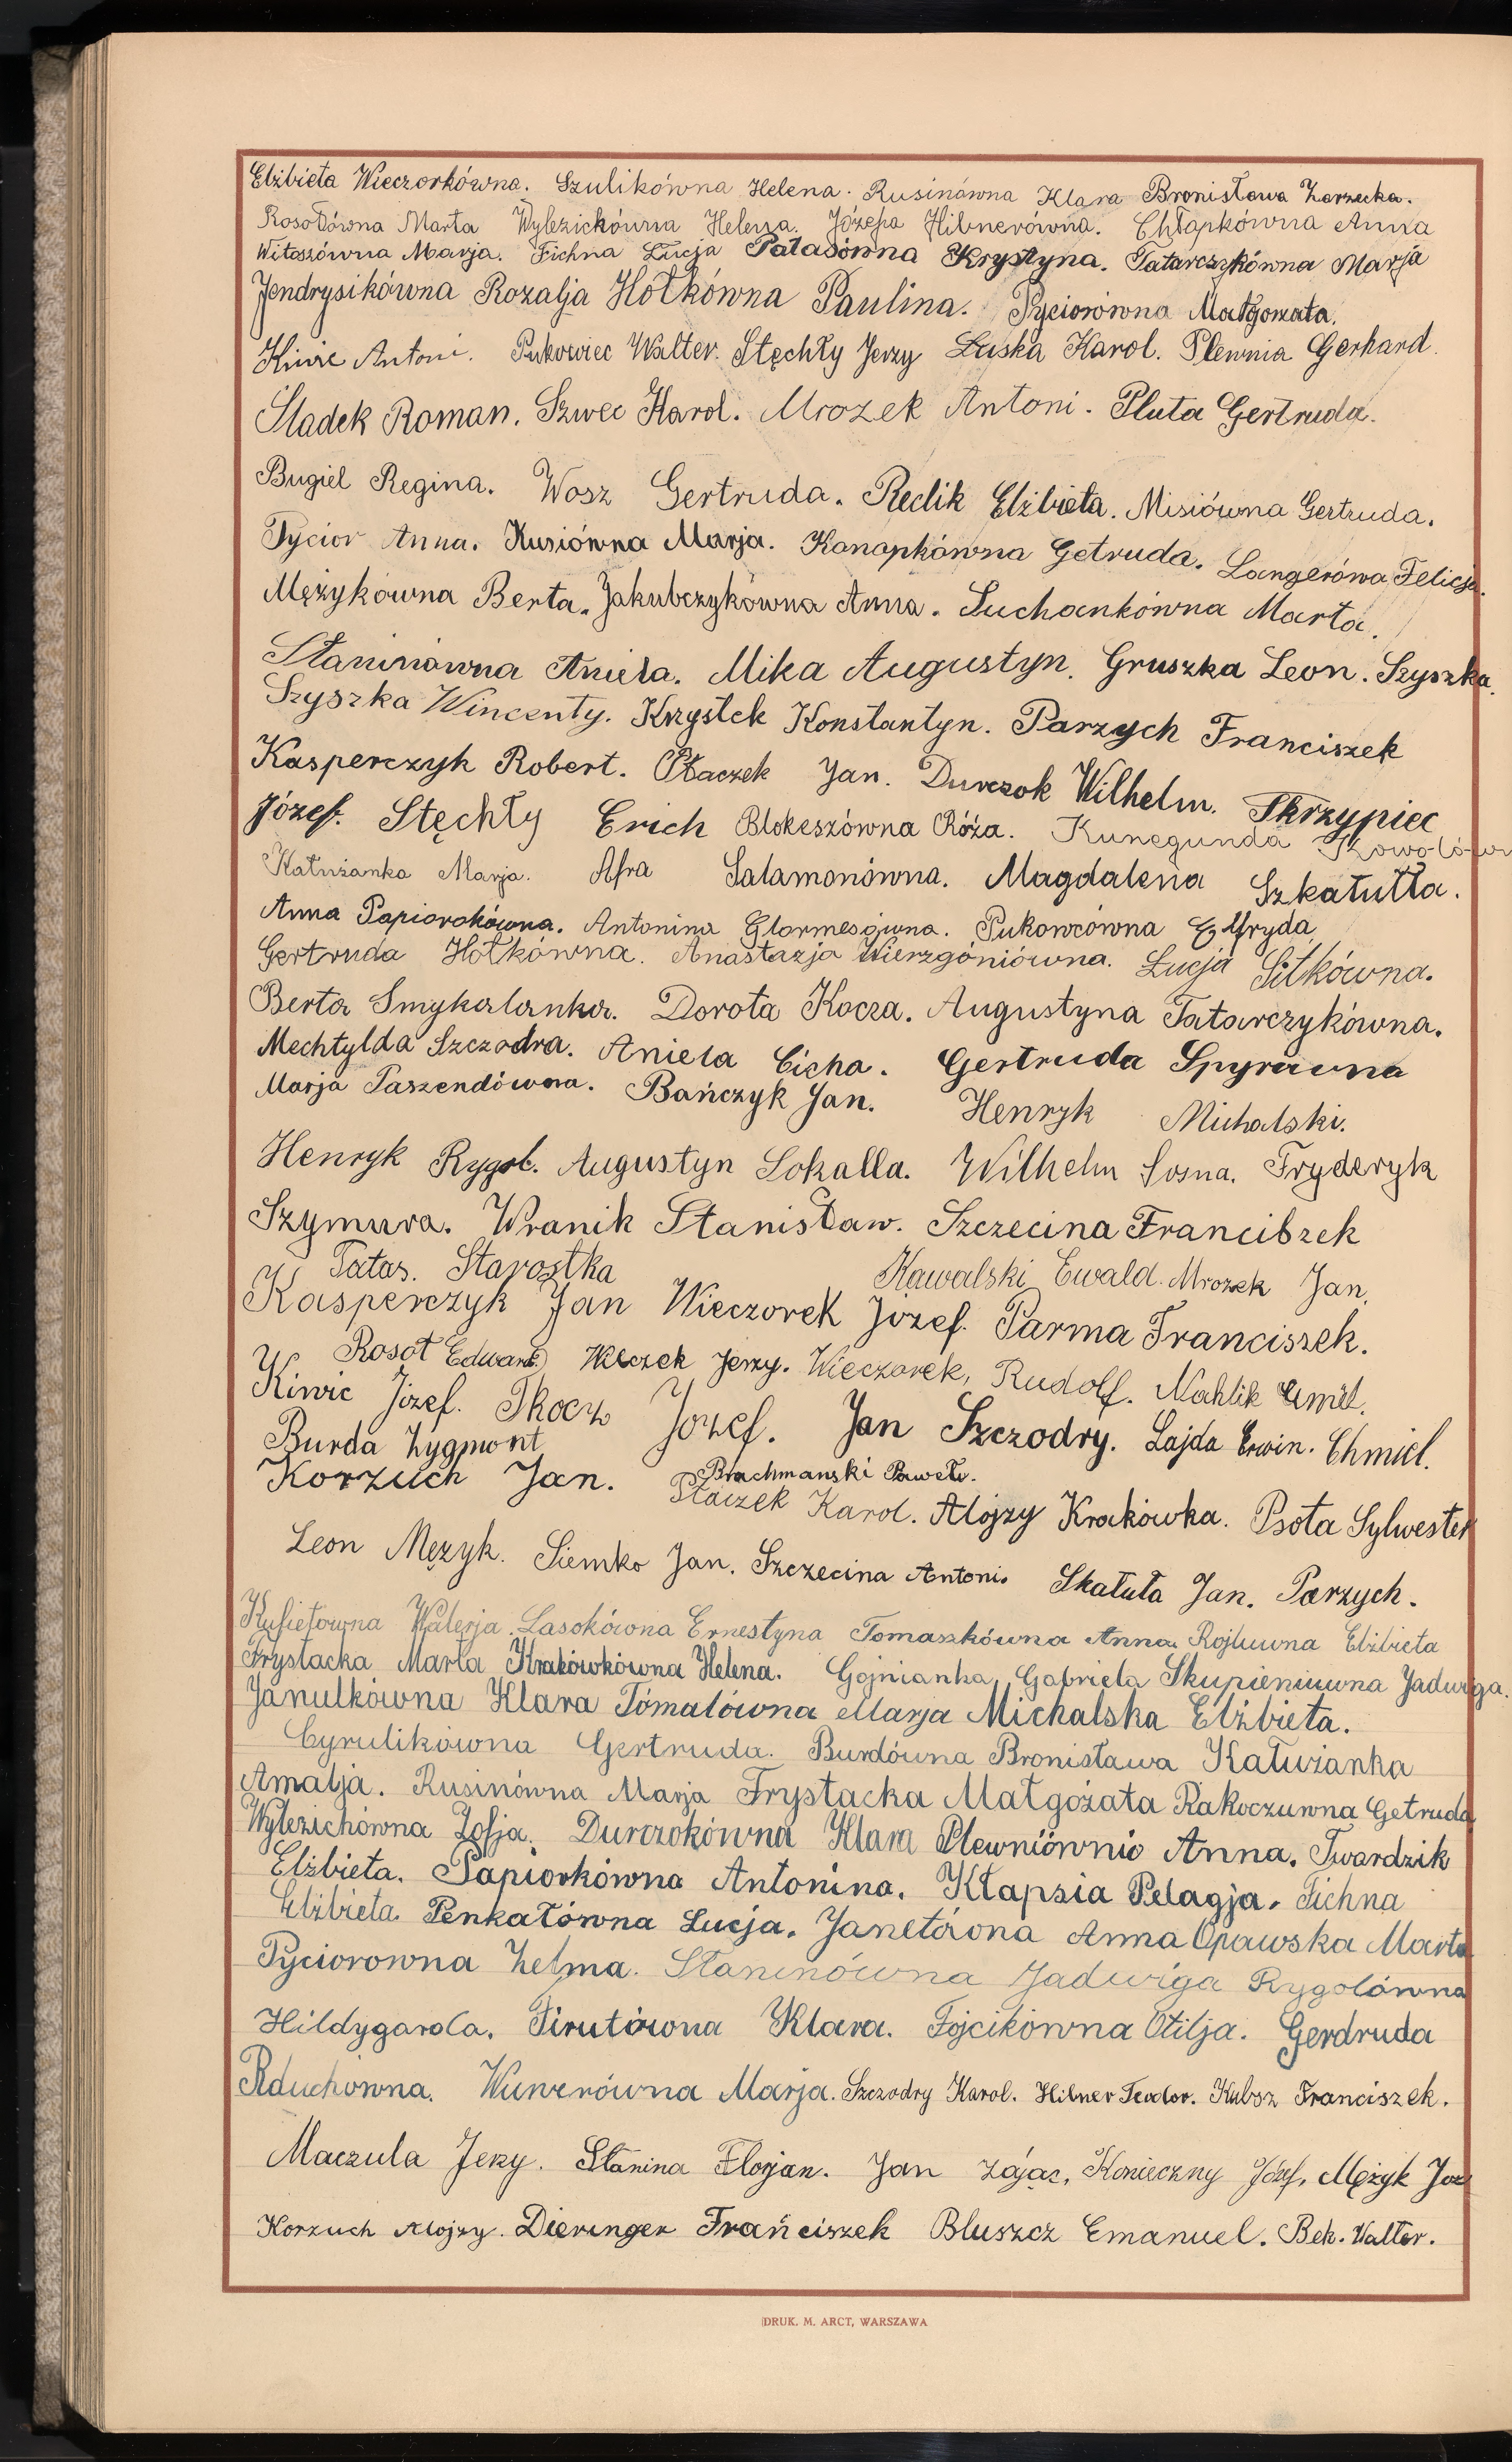 Elżbieta Wieczorkówna. Szulikówna Helena. Rusinówna Klara Bronisława Zarzecka.
Rosołówna Marta Wylezickówna Helena. Józefa Hibnerówna. Chłapkówna Anna
Witoszówna Marja. Fichna Łucja Pałasówna Krystyna. Tatarczykówna Marja
Jendrysikówna Rozalja Hołkówna Paulina. Pyciorówna Małgorzata.
Kiwic Antoni. Pukowiec Walter. Stęchły Jerzy Łuska Karol. Plewnia Gerhard.
Sladek Roman. Szwec Karol. Mrozek Antoni. Pluta Gertruda.
Bugiel Regina. Wosz Gertruda. Reclik Elżbieta. Misiówna Gertruda.
Pycior Anna. Kusiówna Marja. Konopkówna Getruda. Langerówa Felicja.
Mężykówna Berta. Jakubczykówna Anna. Suchankówna Marta.
Staninówna Aniela. Mika Augustyn. Gruszka Leon. Szyszka.
Szyszka Wincenty. Krzystek Konstantyn. Parzych Franciszek
Kasperczyk Robert. Płaczek Jan. Durczok Wilhelm. Skrzypiec
Józef. Stęchły Erich Blokeszówna Róża. Kunegunda
Kałużanka Marja. Afra Salamonówna. Magdalena Szkatułła.
Anna Papiorokówna. Antonina Glormesówna. Pukowcówna Elfryda
Gertruda Hołkówna. Anastazja Wierzgóniówna. Łucja Sitkówna.
Berta Smykalanka. Dorota Kocza. Augustyna Tatarczykówna.
Mechtylda Szczodra. Aniela Cicha. Gertruda Spyrówna
Marja Paszendówna. Bańczyk Jan. Henryk Michalski.
Henryk Rygol. Augustyn Sokalla. Wilhelm Sosna. Fryderyk
Szymura. Wranik Stanisław. Szczecina Francibzek
Tatas. Starostka Kawalski Ewald. Mrozek Jan.
Kasperczyk Jan Wieczorek Józef. Parma Franciszek.
Rosoł Edward Kleczek Jerzy. Wieczorek, Rudolf. Nahlik Emil.
Kiwic Józef. Tkocz Józef. Jan Szczodry. Lajda Erwin. Chmiel.
Burda Zygmont
Korzuch Jan. Brachmanski Paweł.
Płaczek Karol. Alojzy Krakówka. Psota Sylwester
Leon Męzyk. Siemko Jan. Szczecina Antoni. Skatuła Jan. Parzych.
Kufietówna Walerja. Lasokówna Ernestyna Tomaszkówna Anna. Elżbieta
Frystacka Marta Krakówkówna Helena. Gojnianka Gabriela Skupieniuwna Jadwiga.
Janulkówna Klara Tómalówna Marja Michalska Elżbieta.
Cyrulikówna Gertruda. Burdówna Bronisława Kałużanka
Amalja. Rusinówna Marja Frystacka Małgożata Rakoczuwna Getruda
Wylezichówna Zofja. Durczokówna Klara Plewniównio Anna. Twardzik
Elżbieta. Papiorkówna Antonina. Kłapsia Pelagja. Fichna
Elżbieta. Penkałówna Łucja. Janetówna Anna Opawska Marta
Pyciorowna Zelma. Staninówna Jadwiga Rygolówna
Hildygarda. Pirutówna Klara. Fojcikówna Otilja. Gerdruda
Rduchówna. Wuwerówna Marja. Szczodry Karol. Hibner Teodor. Kubsz Franciszek.
Maczula Jerzy. Stanina Florjan. Jan Zając, Konieczny Józef, Mężyk Joz
Korzuch Alojzy. Dieringer Frańciszek Bluszcz Emanuel. Bek. Walter.
DRUK. M. ARCT, WARSZAWA